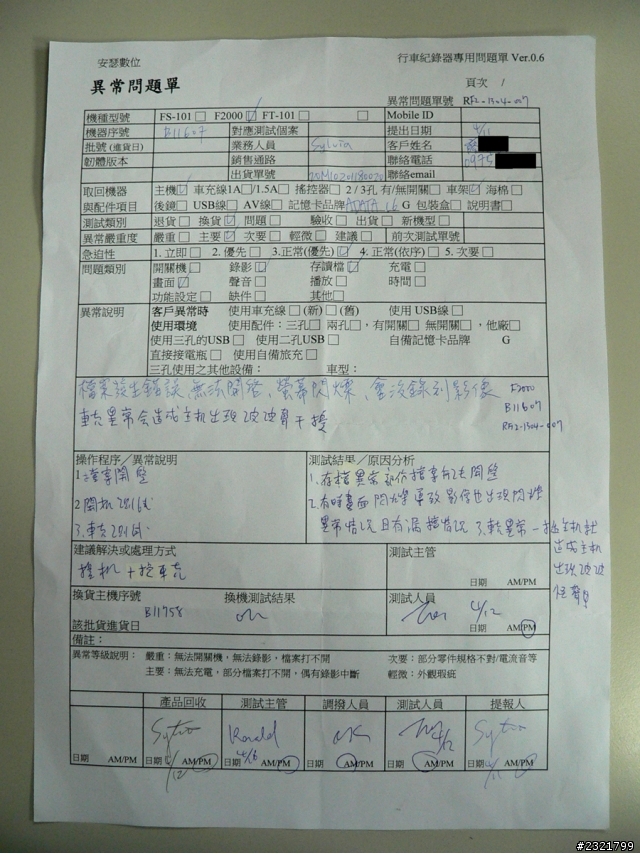 安瑟數位
行車紀錄器專用問題單 Ver.0.6
異常問題單
頁次 1
異常問題單號 RF2-1304-007
機種型號 FS-101□ F2000☑ FT-101 □ Mobile ID
機器序號 B11607 對應測試個案 提出日期 4/11
批號(進貨日) 業務人員 Sylvia 客戶姓名
韌體版本 銷售通路 聯絡電話 0975
出貨單號 聯絡email
取回機器 主機☑ 車充線1A□/1.5A□ 搖控器□ 2 / 3孔 有/無開關□ 車架☑ 海棉□
與配件項目 後鏡□ USB線□ AV線□ 記憶卡品牌ADATA 16 G 包裝盒□ 說明書□
測試類別 退貨□ 換貨☑ 問題□ 驗收□ 出貨□ 新機型□
異常嚴重度 嚴重□ 主要☑ 次要□ 輕微□ 建議□ 前次測試單號
急迫性 1. 立即□ 2. 優先□ 3.正常(優先)☑ 4. 正常(依序)□ 5. 次要□
問題類別 開關機□ 錄影☑ 存讀檔☑ 充電□
畫面☑ 聲音□ 播放□ 時間□
功能設定□ 缺件□ 其他□
異常說明 客戶異常時 使用車充線□ (新)□ (舊) 使用 USB線□
使用環境 使用配件：三孔□ 兩孔□，有開關□ 無開關□，他廠□
使用三孔的USB□ 使用二孔USB□ 自備記憶卡品牌 G
直接接電瓶□ 使用自備旅充□
三孔使用之其他設備： 車型：
檔案發生錯誤，無法開啓、螢幕閃爍、會沒錄到影像
F2000
B11607
RF2-1304-007
車充異常会造成主机出現波波聲干擾
操作程序／異常說明
1 檔案開啟
2 開机測試
3. 車充測試
測試結果／原因分析
1. 存檔異常
異常情況 且有漏檔情況 3. 車充異常一插主机就
造成主机
出現波波
建議解決或處理方式
換机 + 換車充
測試主管
日期 AM/PM
換貨主機序號 B11758
換機測試結果 OK
測試人員 4/12
日期 AM/PM
該批貨進貨日
備註：
異常等級說明： 嚴重：無法開機，無法錄影，檔案打不開 次要：部分零件規格不對/電流音等
主要：無法充電，部分檔案打不開，偶有錄影中斷 輕微：外觀瑕疵
產品回收 測試主管 調撥人員 測試人員 提報人
Ronald OK 4/12
日期 4/12 AM/PM 日期 4/16 AM/PM 日期 AM/PM 日期 AM/PM 日期 4/11 AM/PM
#2321799